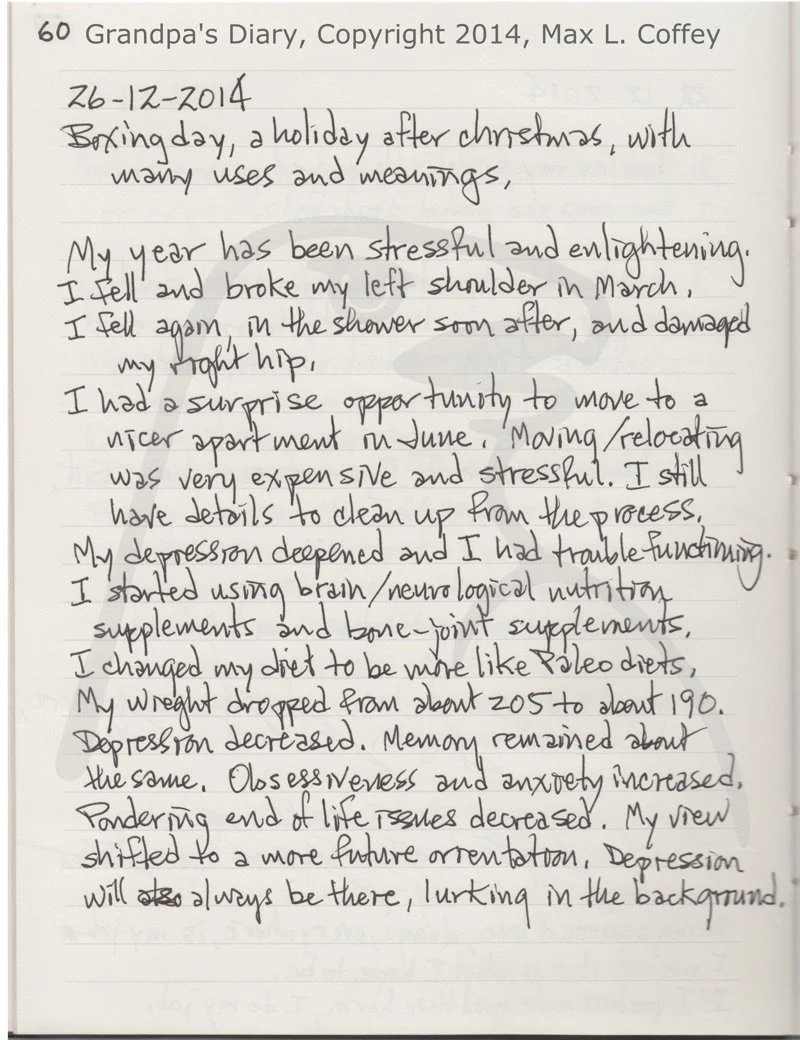 60 Grandpa's Diary, Copyright 2014, Max L. Coffey
26-12-2014
Boxing day, a holiday after christmas, with
many uses and meanings,
My year has been stressful and enlightening.
I fell and broke my left shoulder in March,
I fell again, in the shower soon after, and damaged
my right hip,
I had a surprise opportunity to move to a
nicer apartment in June. Moving/relocating
was very expensive and stressful. I still
have details to clean up from the process,
My depression deepened and I had trouble functioning.
I started using brain/neurological nutrition
supplements and bone-joint supplements,
I changed my diet to be more like Paleo diets,
My weight dropped from about 205 to about 190.
Depression decreased. Memory remained about
the same. Obsessiveness and anxiety increased,
Pondering end of life issues decreased. My view
shifted to a more future orientation, Depression
will also always be there, lurking in the background.